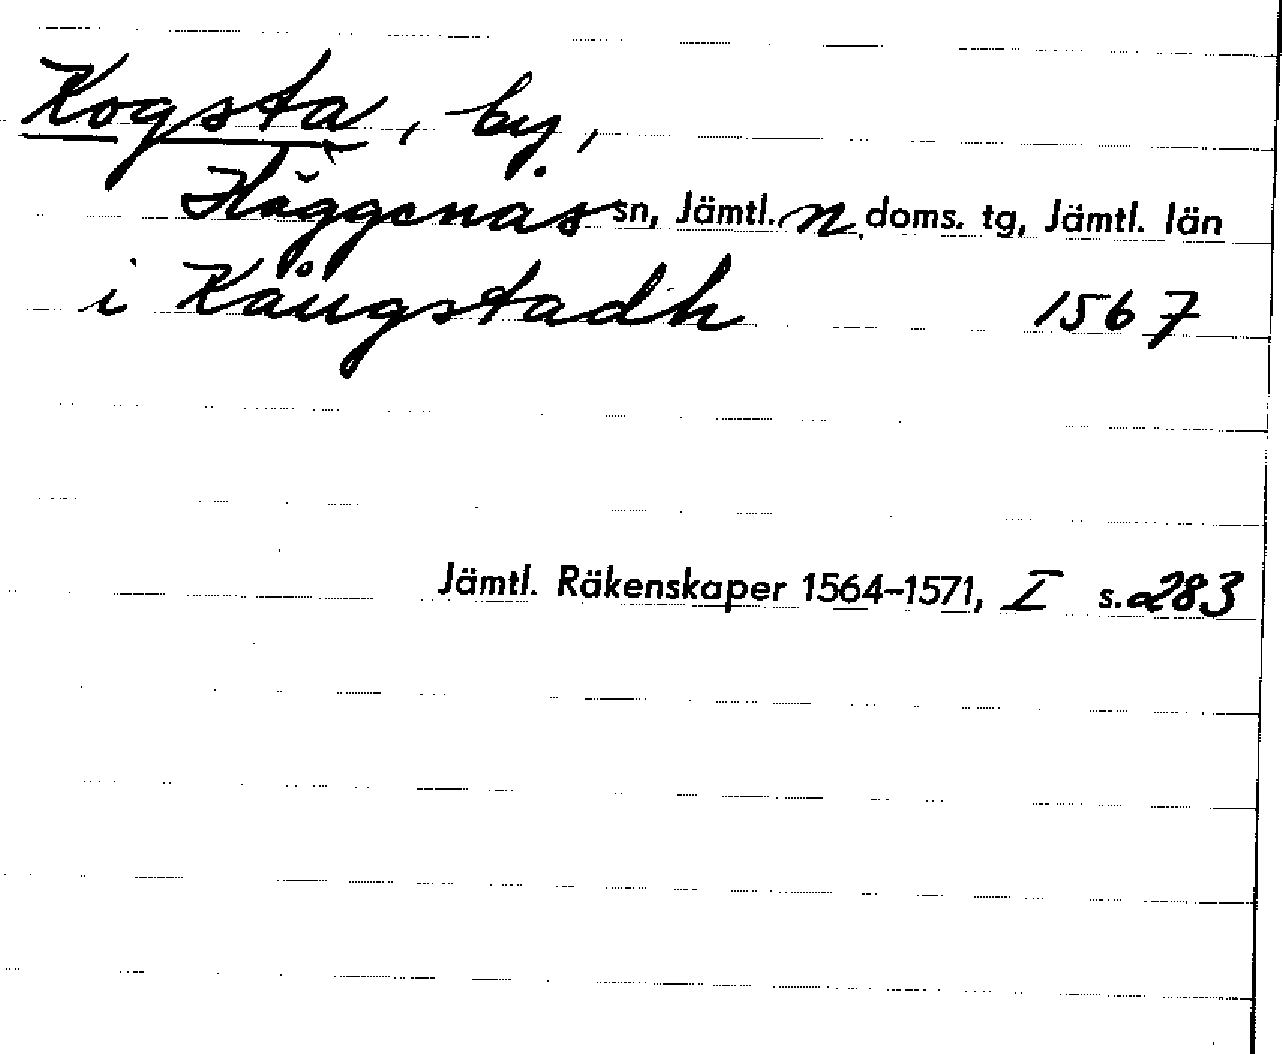 Kogsta, by,
Häggenäs sn, Jämtl. n doms. tg, Jämtl. län
i Kåugstadh 1567
Jämtl. Räkenskaper 1564-1571, I s. 283